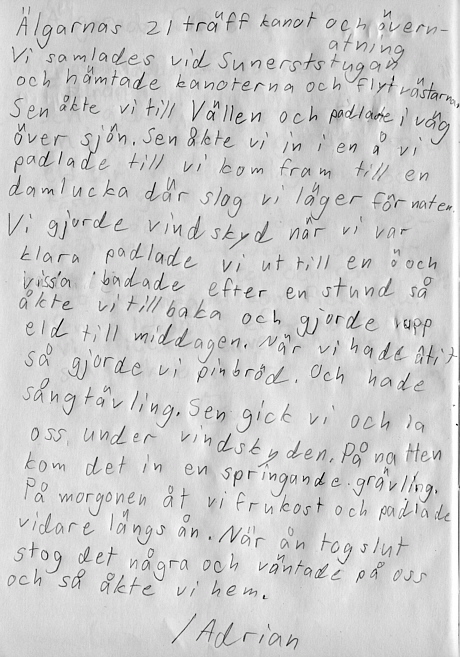 Älgarnas 21 träff kanot och övern-
atning
Vi samlades vid Sunerststugan
och hämtade kanoterna och flytvästarna.
Sen åkte vi till Vällen och padlade i väg
över sjön. Sen åkte vi in i en å vi
padlade till vi kom fram till en
damlucka där slog vi läger för naten.
Vi gjorde vindskyd när vi var
klara padlade vi ut till en ö och
vissa badade efter en stund så
åkte vi tillbaka och gjorde upp
eld till middagen. När vi hade ätit
så gjorde vi pinbröd. Och hade
sångtävling. Sen gick vi och la
oss under vindskyden. På natten
kom det in en springande grävling.
På morgonen åt vi frukost och padlade
vidare längs ån. När ån tog slut
stog det några och väntade på oss
och så åkte vi hem.
/Adrian